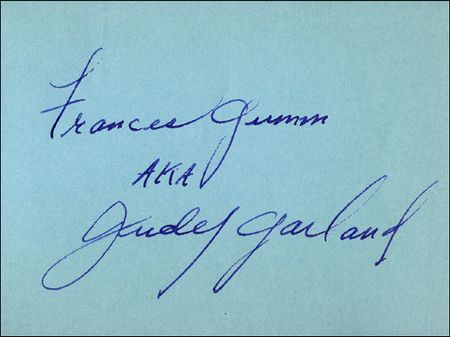 Frances Gumm
AKA
Judy Garland